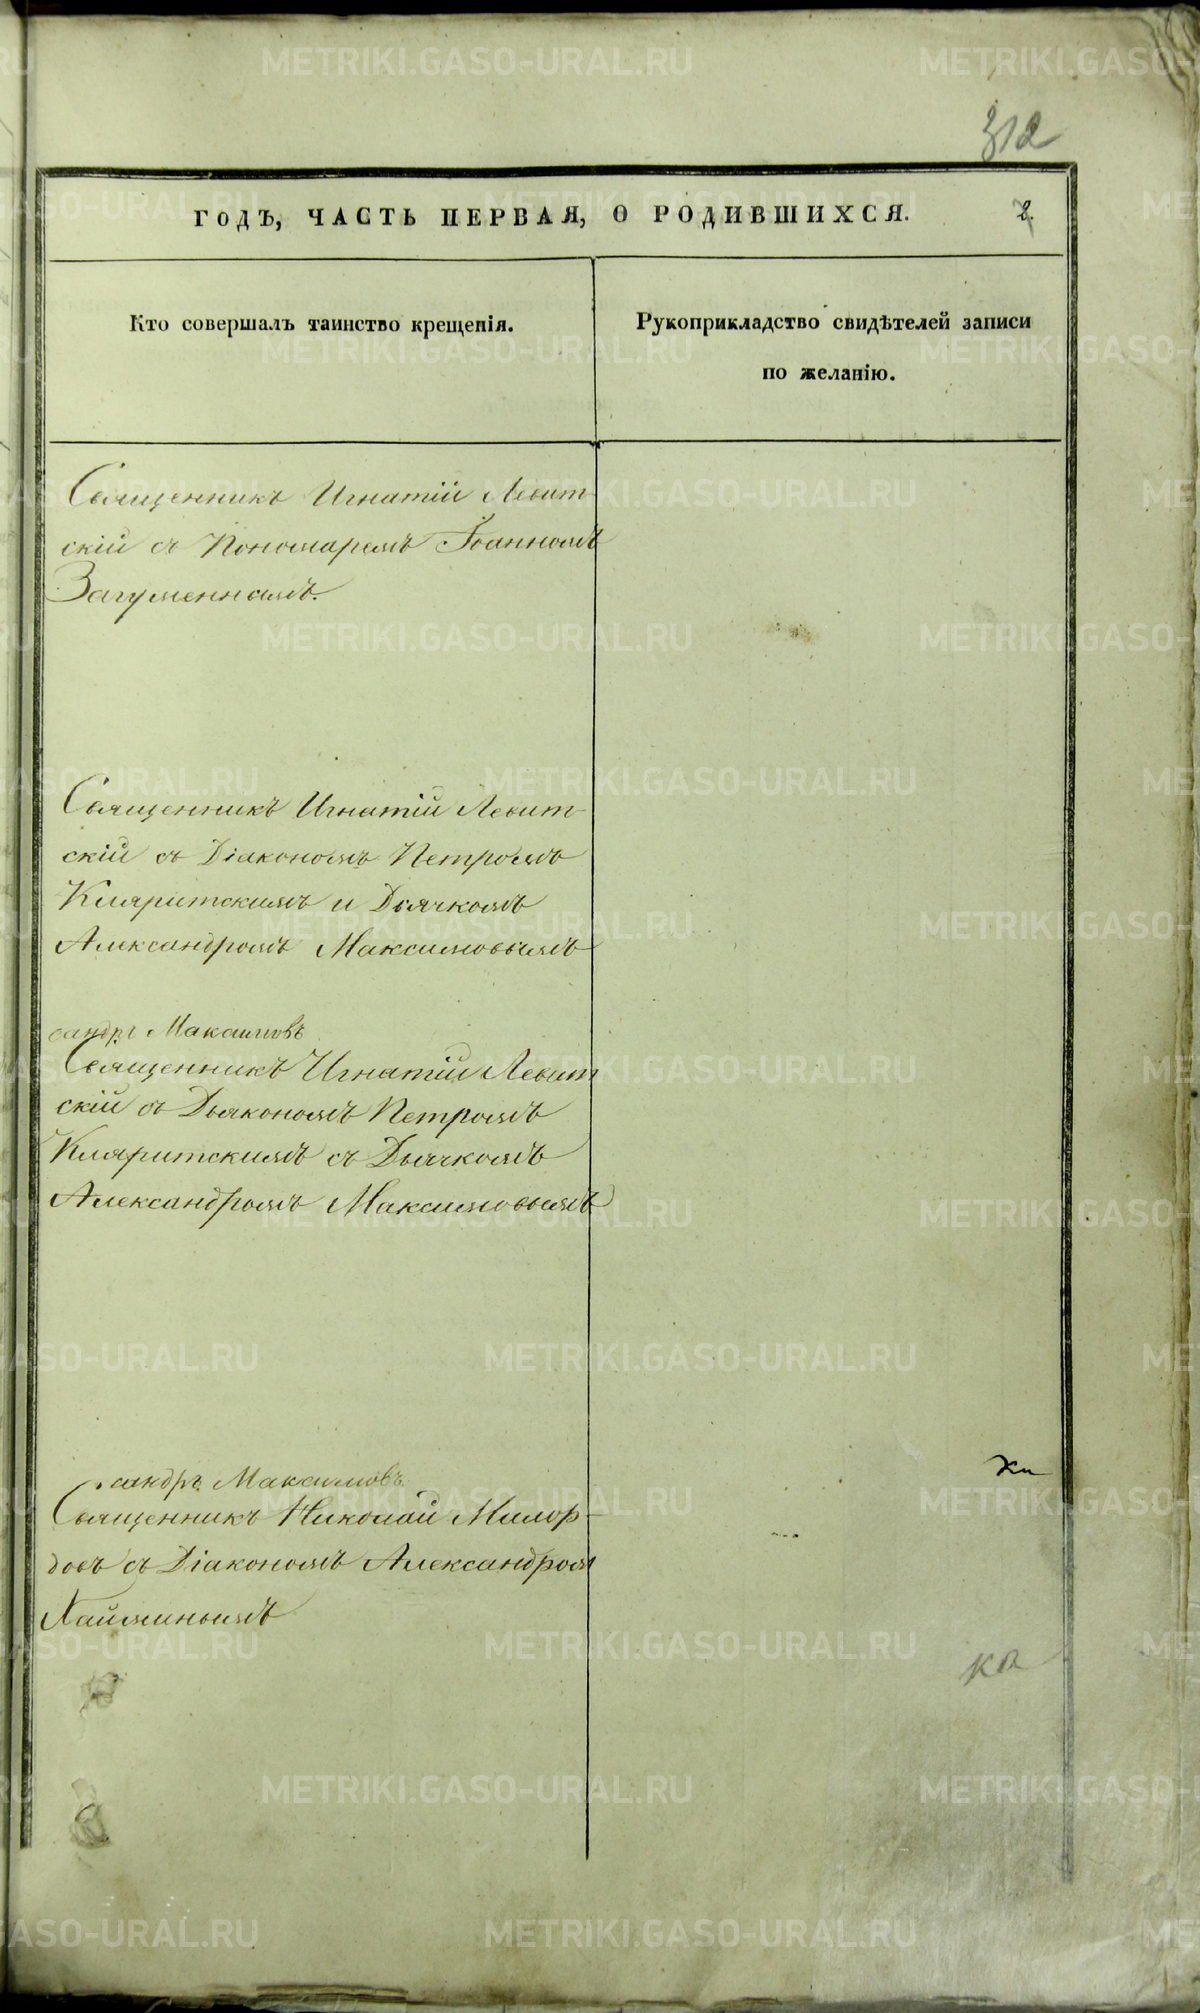 312
ГОДЪ, ЧАСТЬ ПЕРВАЯ, О РОДИВШИХСЯ.
2.
Кто совершалъ таинство крещенія.
Рукоприкладство свидѣтелей записи
по желанію.
Священникъ Игнатій Левит-
скій съ Пономаремъ Іоанномъ
Загуменнамъ.
Священникъ Игнатій Левит-
скій съ Діакономъ Петромъ
Кляритскимъ и Дьячкомъ
Александромъ Максимовымъ
сандръ Максимовъ
Священникъ Игнатій Левит
скій съ Дьякономъ Петромъ
Кляритскимъ съ Дьячкомъ
Александромъ Максимовымъ
сандръ Максимовъ
Священникъ Николай Милор-
довъ съ Діакономъ Александром
Хайминымъ
METRIKI.GASO-URAL.RU